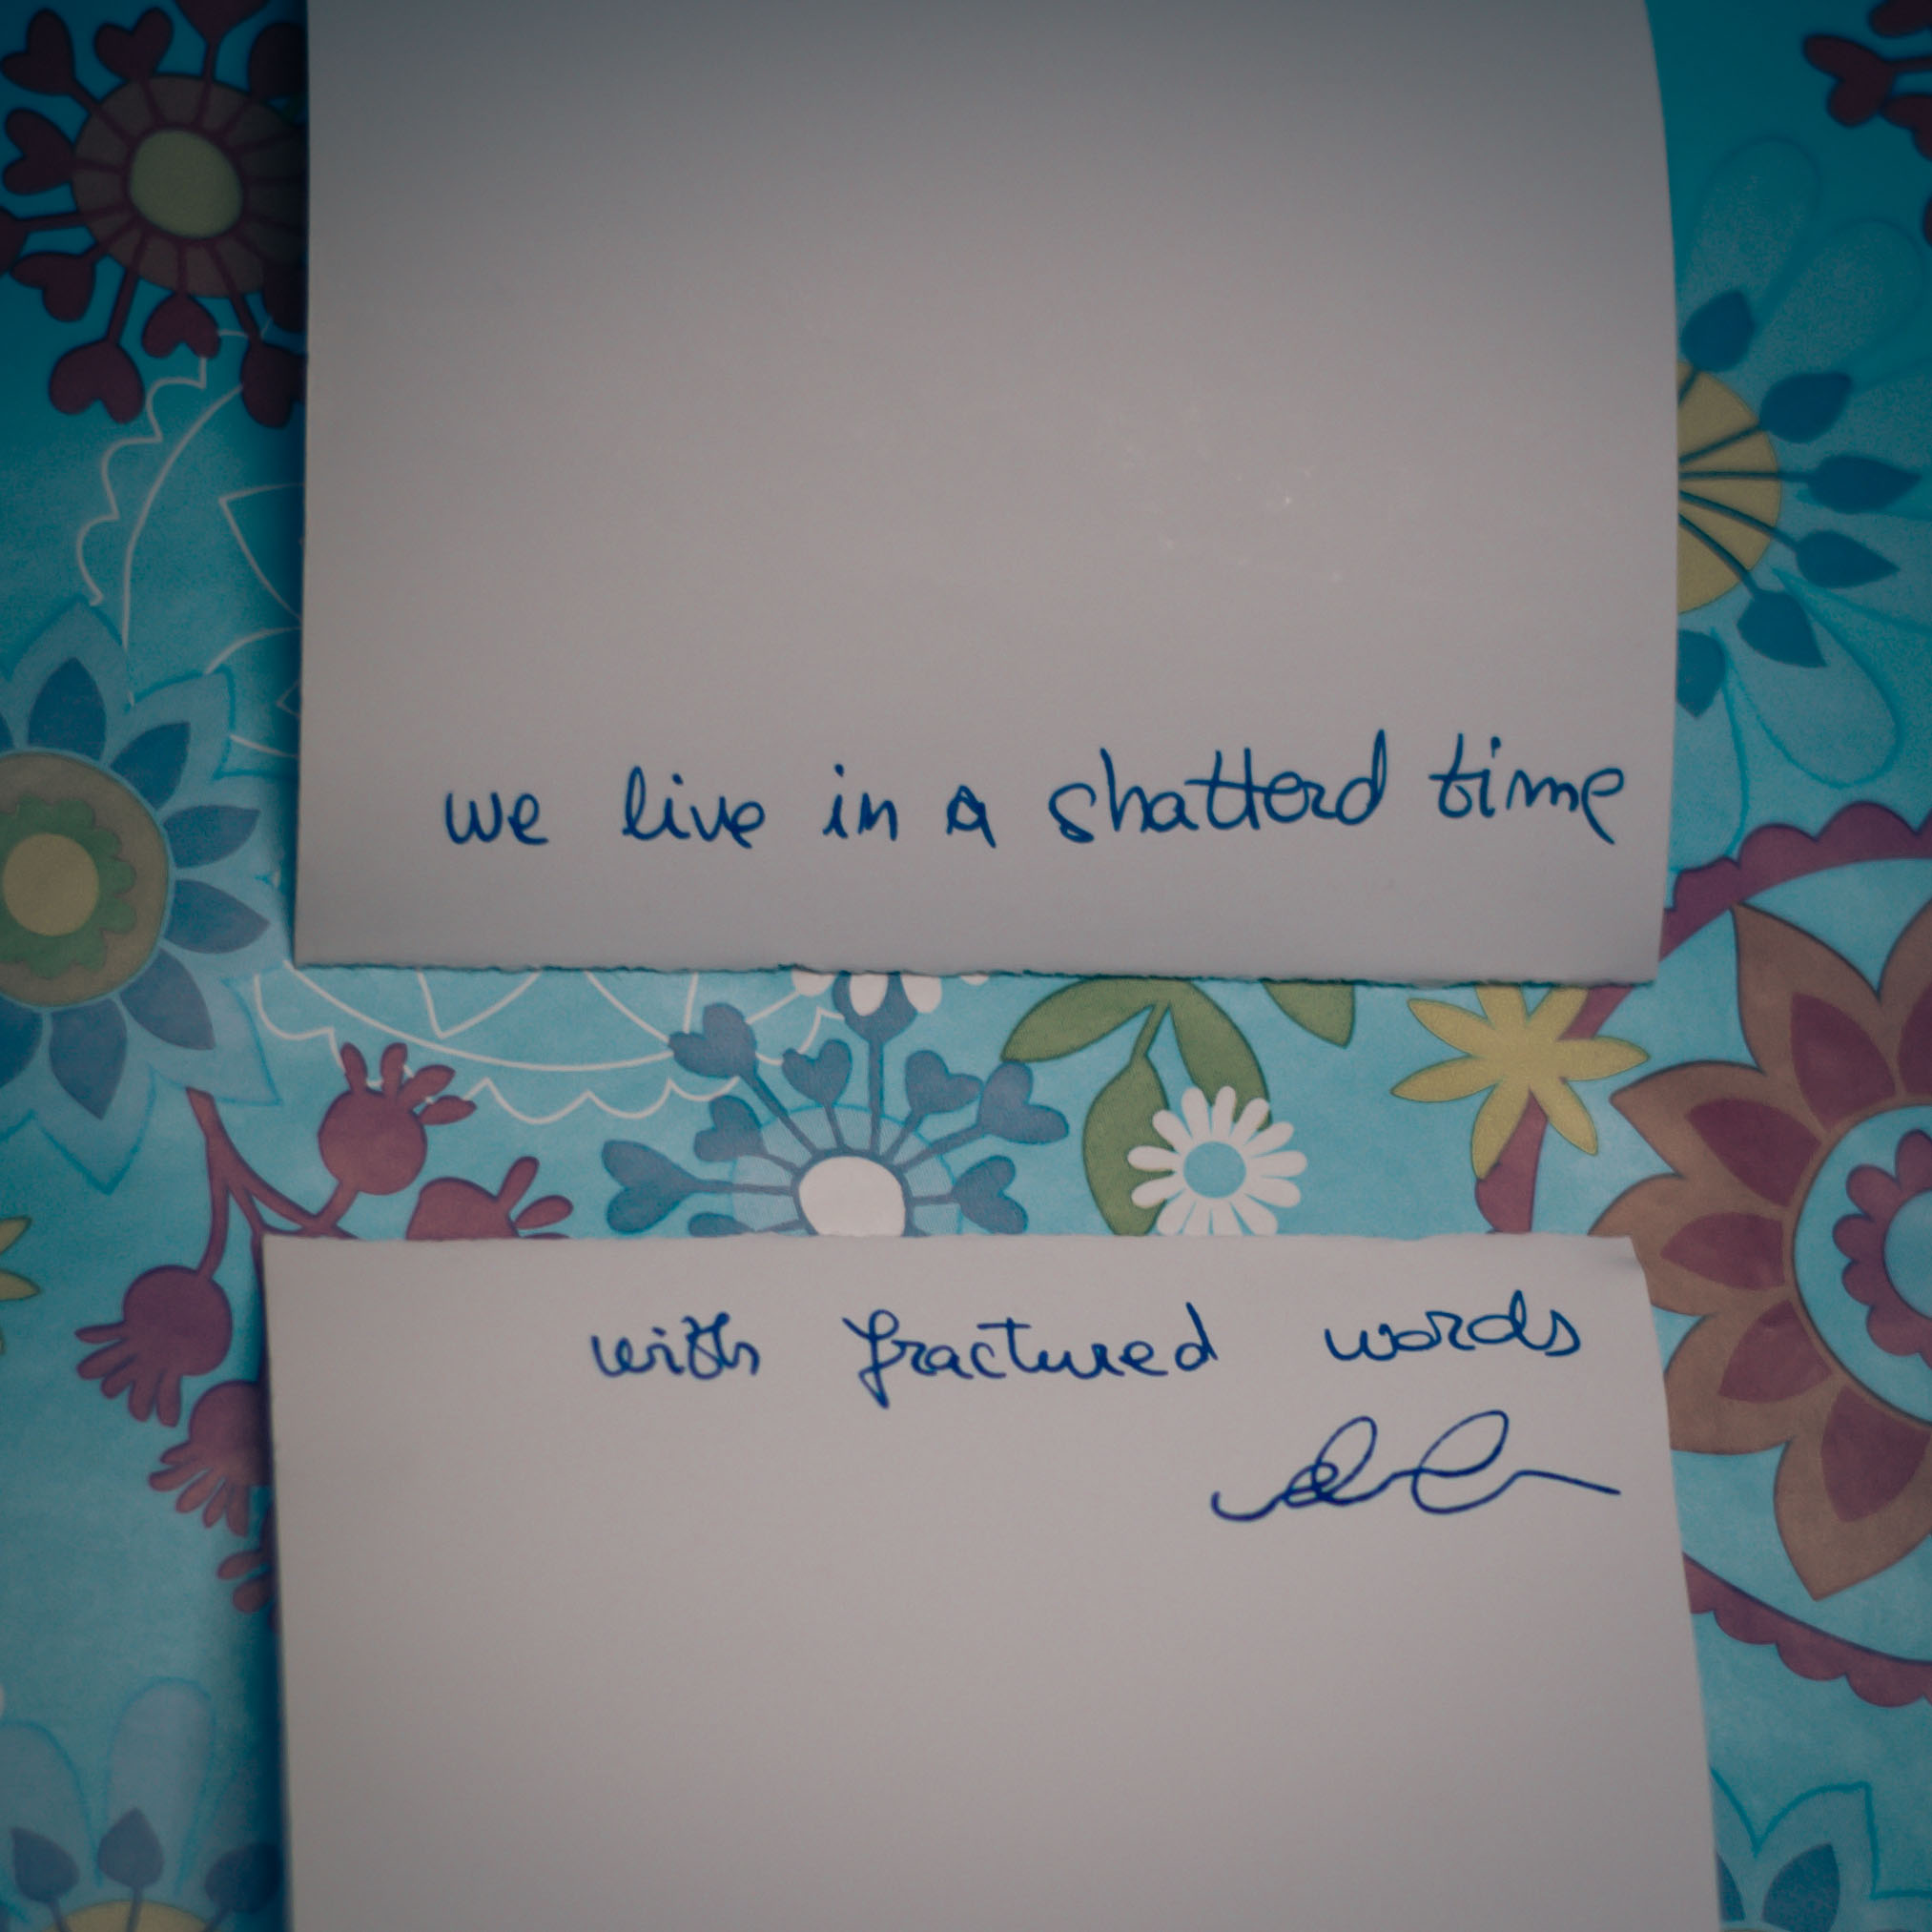 we live in a shatterd time
with fractured words